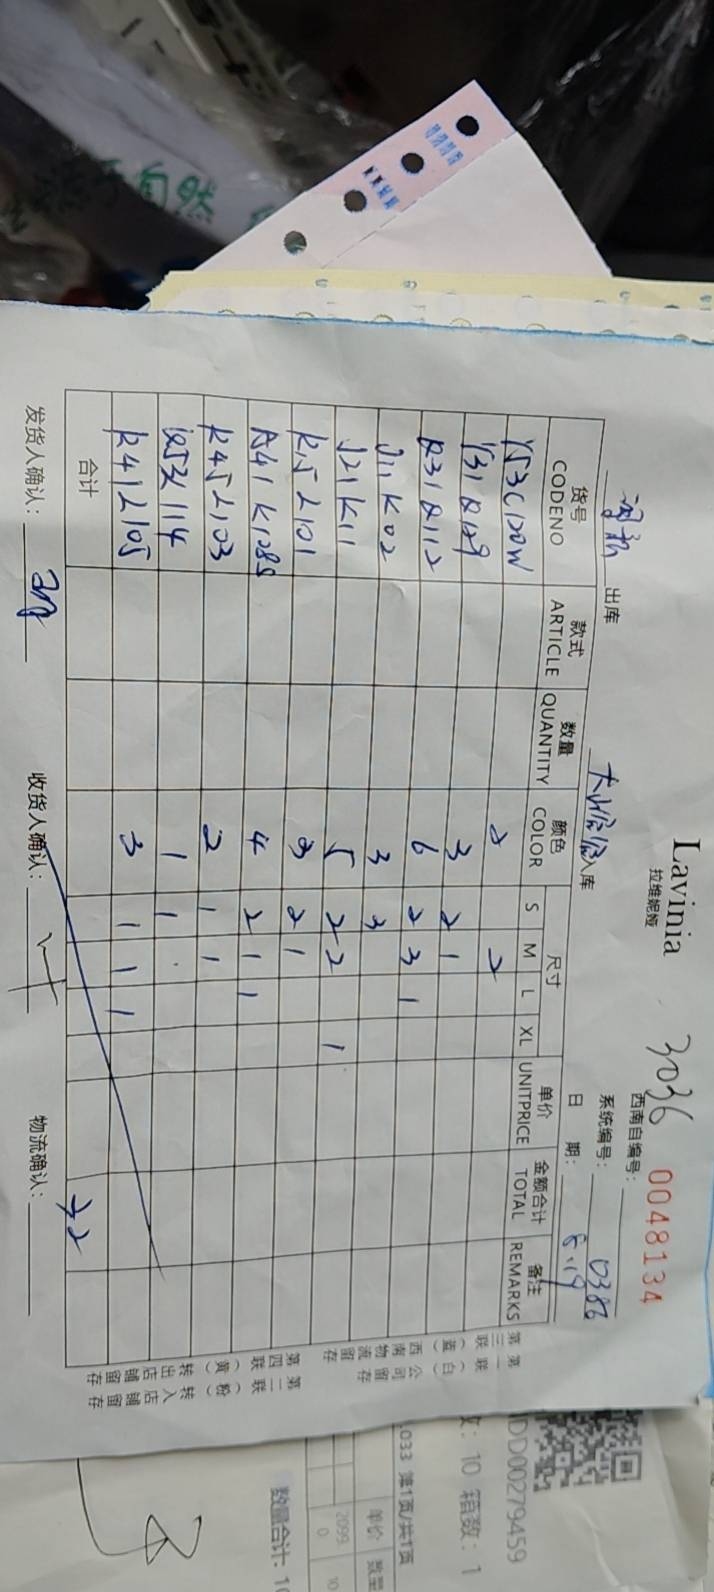 Lavinia
拉维妮娅
3036
0048134
西南自编号:
系统编号: 0386
出库
入库
日期: 6.19
货号 CODENO 款式 ARTICLE 数量 QUANTITY 颜色 COLOR 尺寸 S M L XL 单价 UNITPRICE 金额合计 TOTAL 备注 REMARKS
Y53C120W 2 2
Y31Q129 3 2 1
Q31Q112 6 2 3 1
J11K02 3 3
J21K11 5 2 2 1
K15L101 3 2 1
A41K1085 4 2 1 1
K45L103 2 1 1
1 1
K41L105 3 1 1 1
合计 32
发货人确认:
收货人确认:
物流确认:
第一联（白）公司留存
第三联（蓝）西南物流留存
第二联（粉）转入店铺留存
第四联（黄）转出店铺留存
DD00279459
10 箱数: 1
.033 第1页/共1页
单价
数量
2099
10
0
数量合计: 10